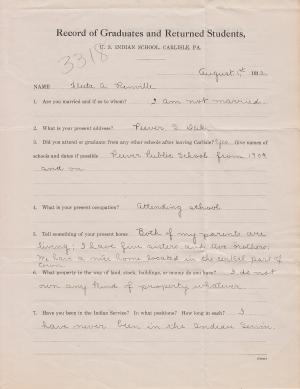 Record of Graduates and Returned Students,
U. S. INDIAN SCHOOL, CARLISLE, PA.
3318
August 1st 1912
NAME A. Renville
1. Are you married and if so to whom? I am not married.
2. What is your present address? Peever S. Dak.
3. Did you attend or graduate from any other schools after leaving Carlisle? Yes. Give names of
schools and dates if possible Peever Public School from 1909
and on
4. What is your present occupation? Attending school
5. Tell something of your present home Both of my parents are
living; I have five sisters and two brothers.
We have a nice home located in the part of
town.
6. What property in the way of land, stock, buildings, or money do you have? I do not
own any kind of property whatever
7. Have you been in the Indian Service? In what positions? How long in each? I
have never been in the Indian Serv.
(Over)